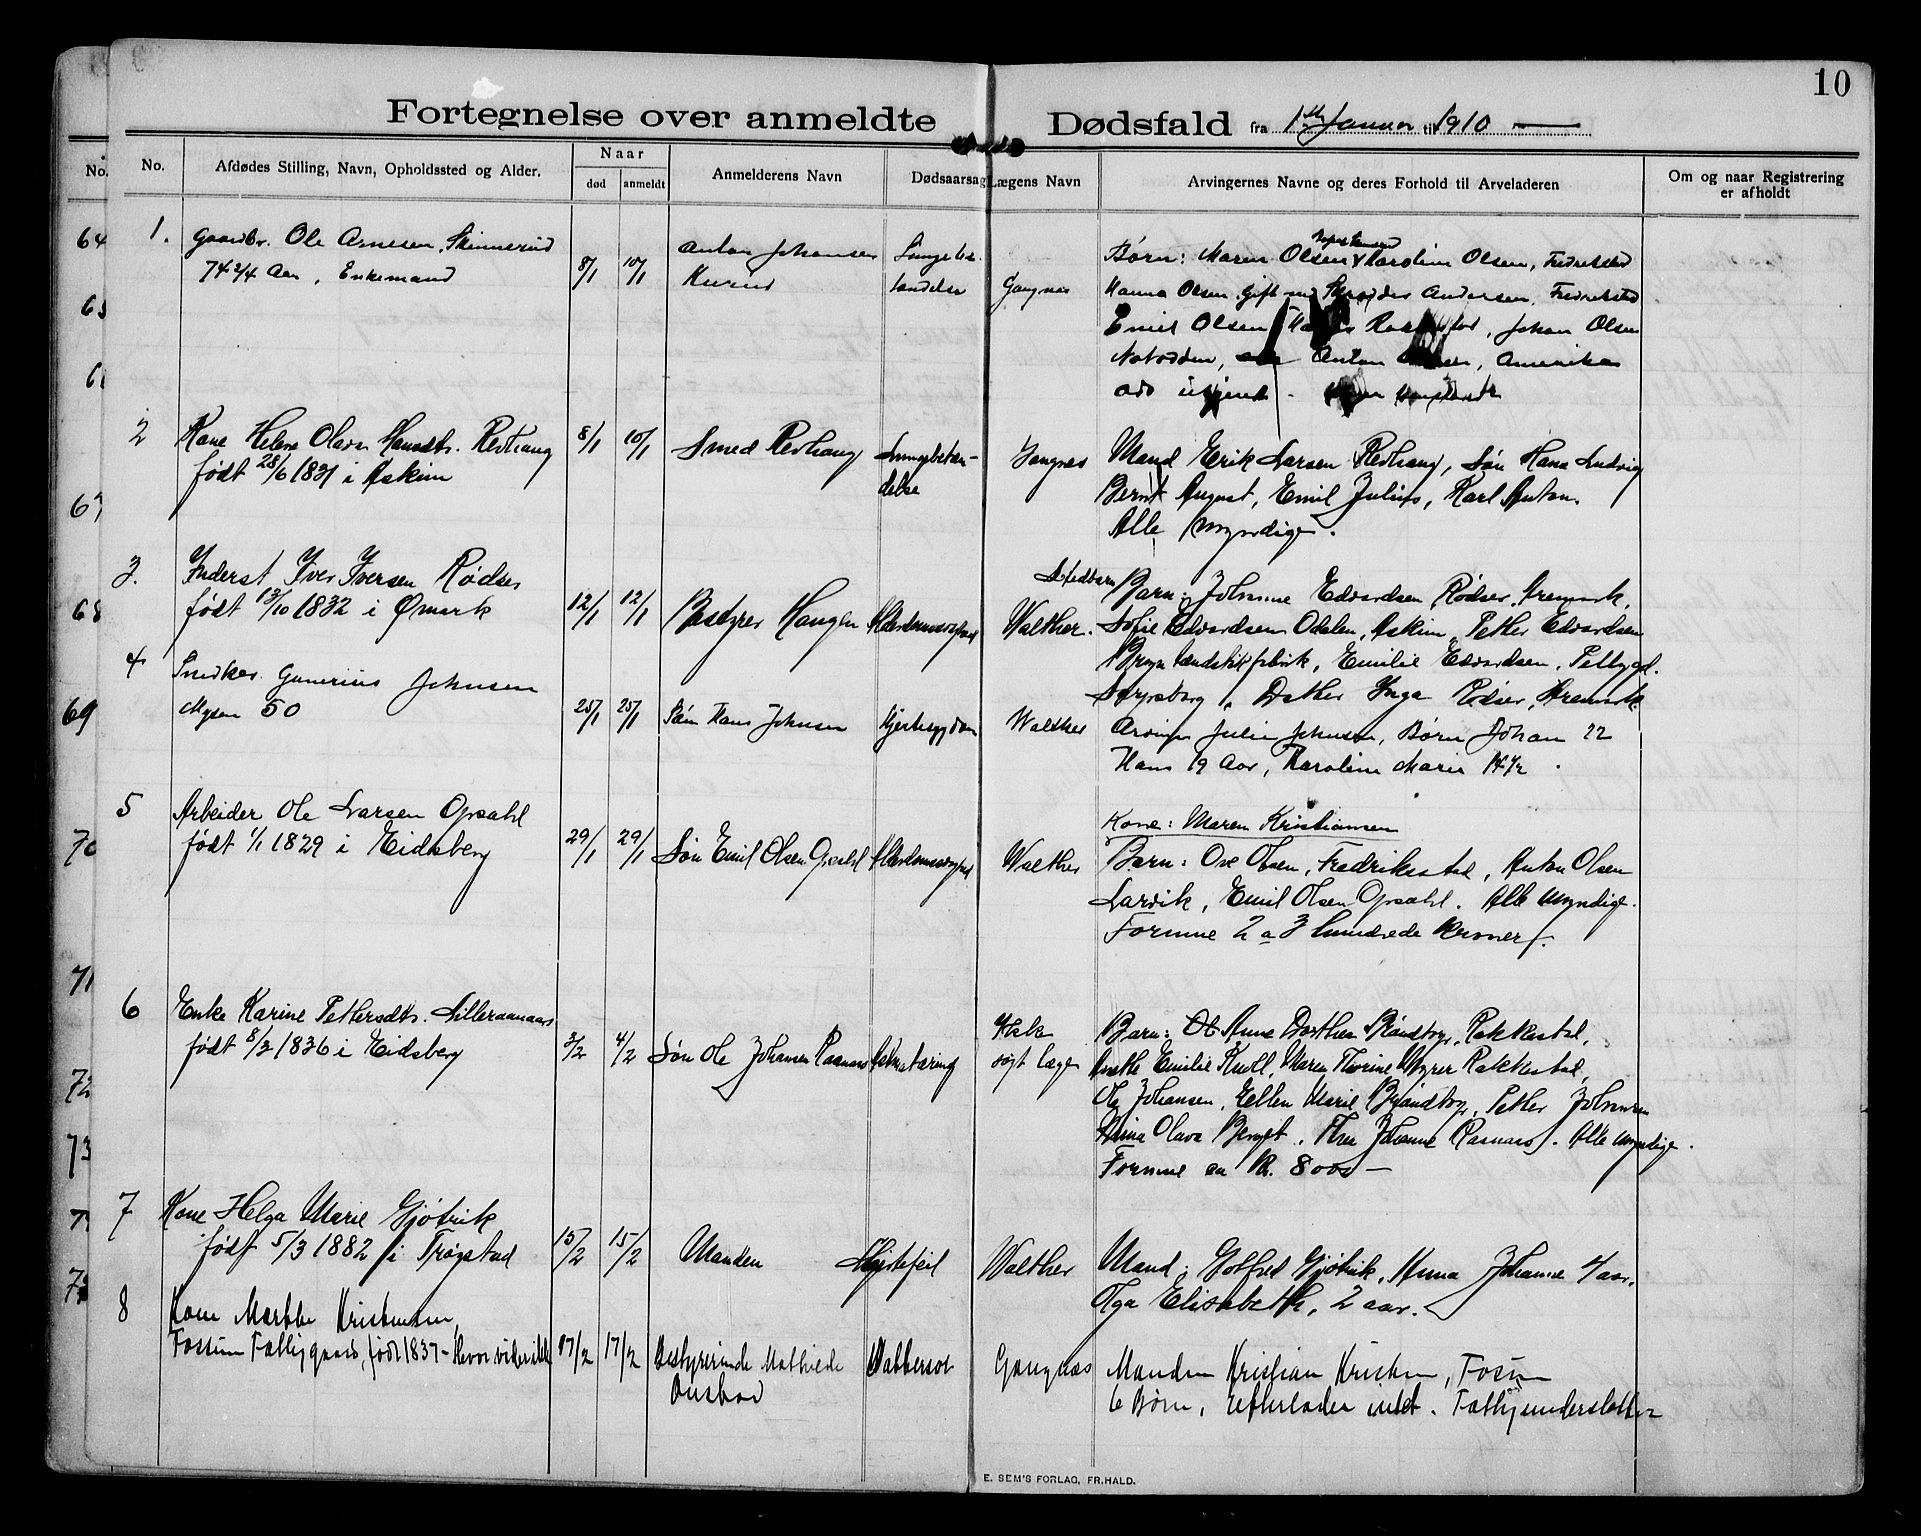 10
Fortegnelse over anmeldte Dødsfald fra 1ste Januar til 1910
No.
No. Afdødes Stilling, Navn, Opholdssted og Alder. Naar død anmeldt Anmelderens Navn Dødsaarsag Lægens Navn Arvingernes Navne og deres Forhold til Arveladeren Om og naar Registrering er afholdt
64
65
67
68
69
70
71
72
73
1. Gaardbr. Ole Arnesen, Skinnerud
74 3/4 Aar, Enkemand
8/1 10/1
Anton Johansen
Lungebe-
tændelse
Gangnæs
Børn: Maren Olsen Karoline Olsen, Fredrikstad
Hanna Olsen, gift med Andersen, Fredrikstad
Emil Olsen Johan Olsen
Notodden, Anton Amerika
2 Kone Helene Olava Hansdtr. Revhaug
født 28/6 1831 i Askim
8/1 10/1
Smed Revhaug
Lungebetæn-
delse
Gangnæs
Mand Erik Larsen Revhaug, Søn Hans Ludvig
Bernt August, Emil Julius, Karl Anton.
Alle Myndige.
3. Inderst Iver Iversen Rødser
født 13/10 1832 i Ømark
12/1 12/1
Bestyrer Haugen
Alderdomssvaghed
Walther.
Stedbarn
Barn: Johanne Edvardsen, Rødser, Aremark,
Sofie Edvardsen Odalen, Askim, Petter Edvardsen
Bryn tændstikfabrik, Emilie Edvardsen,
Sarpsborg, Datter Inga Rødser, Aremark
4 Snedker Gunerius Johnsen
Mysen 50
25/1 25/1
Søn Hans Johnsen
Hjertesygdom
Walther
Julie Johnsen, Børn Johan 22
Hans 19 Aar, Karoline Marie 14 1/2
5 Arbeider Ole Larsen Opsahl
født 1/1 1829 i Eidsberg
29/1 29/1
Søn Emil Olsen Opsahl
Alderdomssvaghed
Walther
Kone: Maren Kristiansen
Barn: Ove Olsen, Fredriksstad, Anton Olsen
Larvik, Emil Olsen Opsahl. Alle Myndige.
Formue 2 a 3 hundrede Kroner.
6 Enke Karine Pettersdtr. Lilleraanaas
født 8/3 1836 i Eidsberg
3/2 4/2
Søn Ole Johansen Raanaas
Ikke
søgt læge
Barn: Anne Dorthea Rakkestad,
Emilie Knoll, Maren Thorine Myrer Rakkestad,
Ole Johansen, Ellen Marie Petter Johansen
Anna Olava Berget, Johanne Raanaas. Alle Myndige.
Formue ca Kr. 8000 —
7 Kone Helga Marie Gjøtrik
født 5/3 1882 i Trøgstad
15/2 15/2
Manden
Hjertefeil
Walther
Mand: Gotfred Gjøtrik, Anna Johanne 4 aar,
Olga Elisabeth, 2 aar.
8 Kone Marthe Kristensen,
Fossum Fattiggaard, født 1837 – Hvor vides ikke
17/2 17/2
Bestyrerinde Mathilde
Onstad
Vattersot
Gangnæs
Manden Kristian Kristen, Fossum
6 Børn, Efterlader intet. Fattigunderstøttet
E. SEM'S FORLAG, FR.HALD.